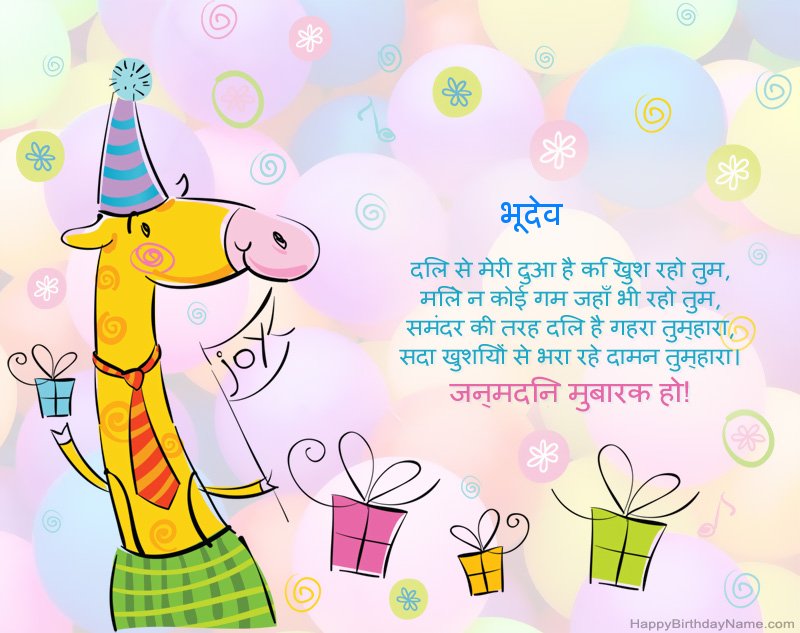 भूदेव
दिल से मेरी दुआ है कि खुश रहो तुम,
मिले न कोई गम जहाँ भी रहो तुम,
समंदर की तरह दिल है गहरा तुम्हारा,
सदा खुशियों से भरा रहे दामन तुम्हारा।
जन्मदिन मुबारक हो!
joy
HappyBirthdayName.com